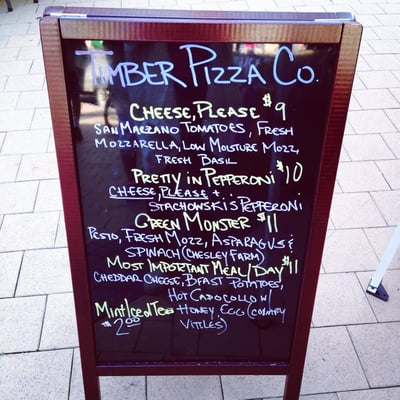 TIMBER PIZZA CO.
CHEESE, PLEASE $9
SAN MARZANO TOMATOES, FRESH
MOZZARELLA, LOW MOISTURE MOZZ,
FRESH BASIL
PRETTY IN PEPPERONI $10
CHEESE, PLEASE +
STACHOWSKI'S PEPPERONI
GREEN MONSTER $11
PESTO, FRESH MOZZ, ASPARAGUS &
SPINACH (CHESLEY FARM)
MOST IMPORTANT MEAL/DAY $11
CHEDDAR CHEESE, BFAST POTATOES,
HOT CAPOCOLLO W/
HONEY, EGG (COUNTRY
VITTLES)
Mint Iced Tea
$2.00